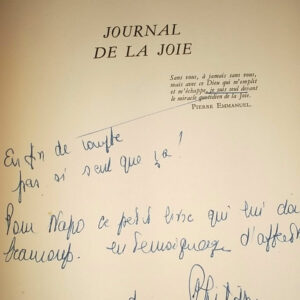 JOURNAL
DE LA JOIE
Sans vous, à jamais sans vous,
mais avec ce Dieu qui m'emplit
et m'échappe, je suis seul devant
le miracle quotidien de la Joie.
PIERRE EMMANUEL.
En fin de compte
pas si seul que ça !
Pour Napo ce petit livre qui lui doi
beaucoup. en témoignage d'affect